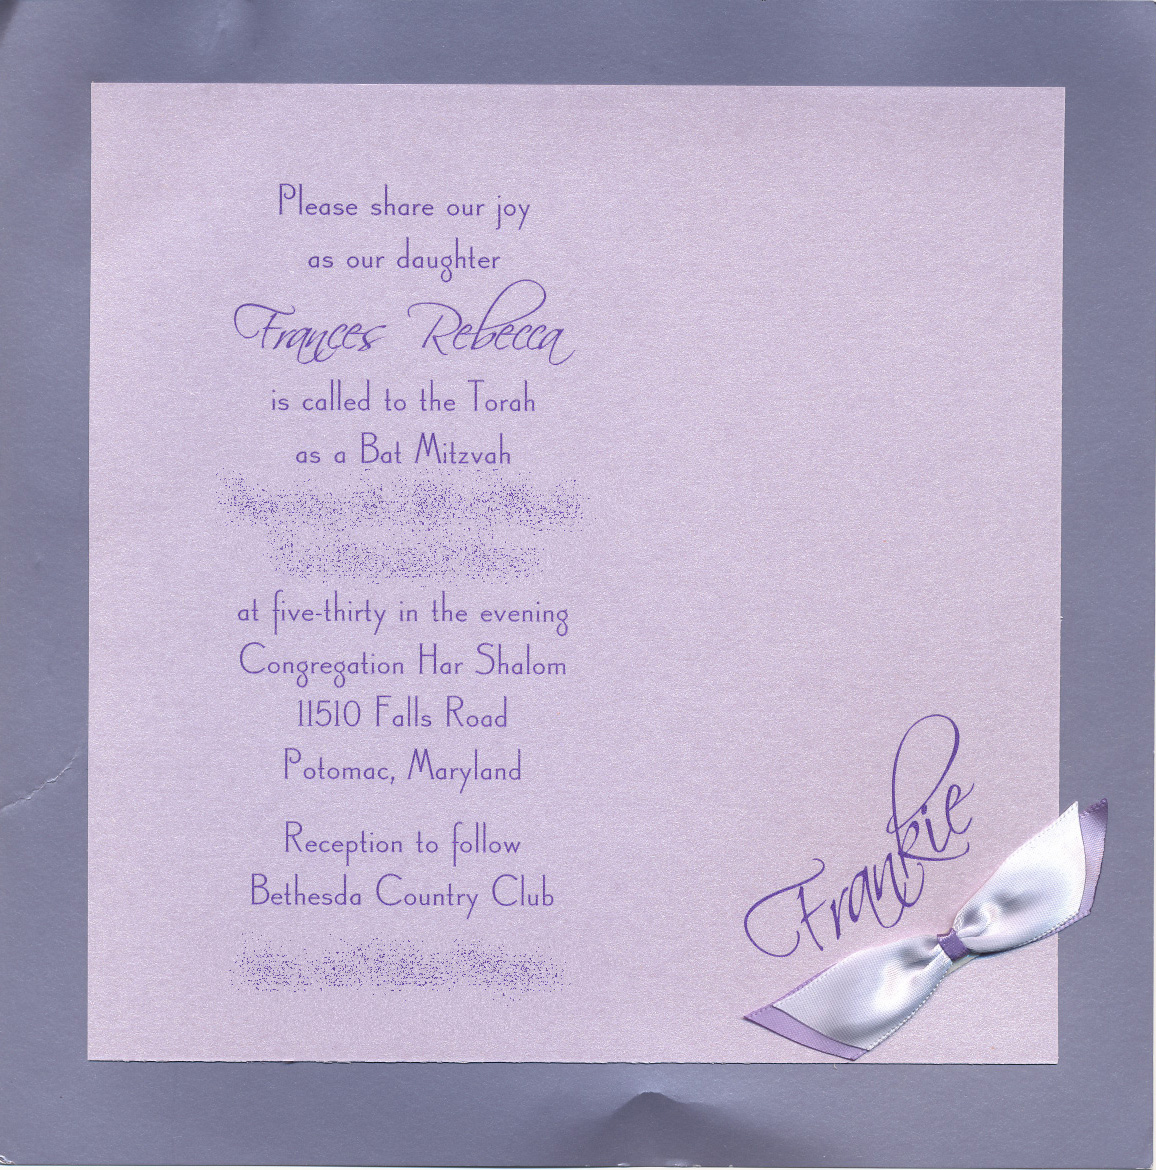 Please share our joy
as our daughter
Frances Rebecca
is called to the Torah
as a Bat Mitzvah
at five-thirty in the evening
Congregation Har Shalom
11510 Falls Road
Potomac, Maryland
Reception to follow
Bethesda Country Club
Frankie